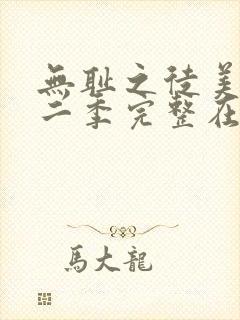 無耻之徒美
二季完整在
馬大龍